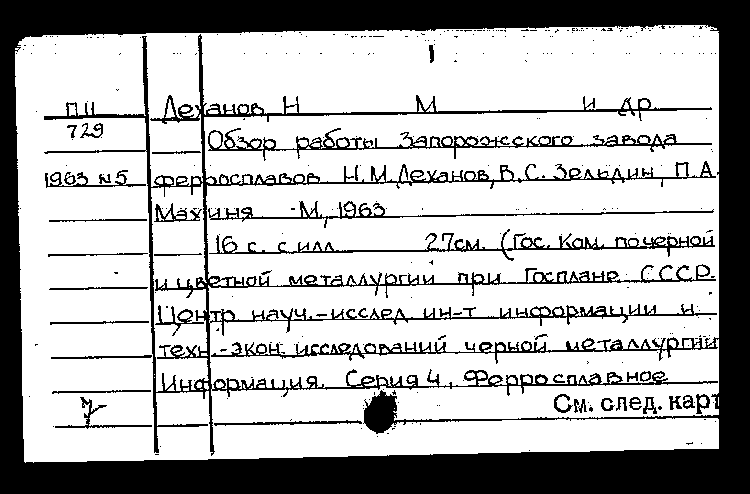 П II Деханов, Н М и др.
729 Обзор работы Запорожского завода
1963 №5 ферросплавов Н.М.Деханов, В.С. Зельдин, П.А.
Махиня -М., 1963
16 с. с илл. 27см. (Гос. Ком. по черной
и цветной металлургии при Госплане СССР.
Центр науч.-исслед. ин-т информации и
техн.-экон. исследований черной металлургии
Информация. Серия 4, Ферросплавное
См. след. карт